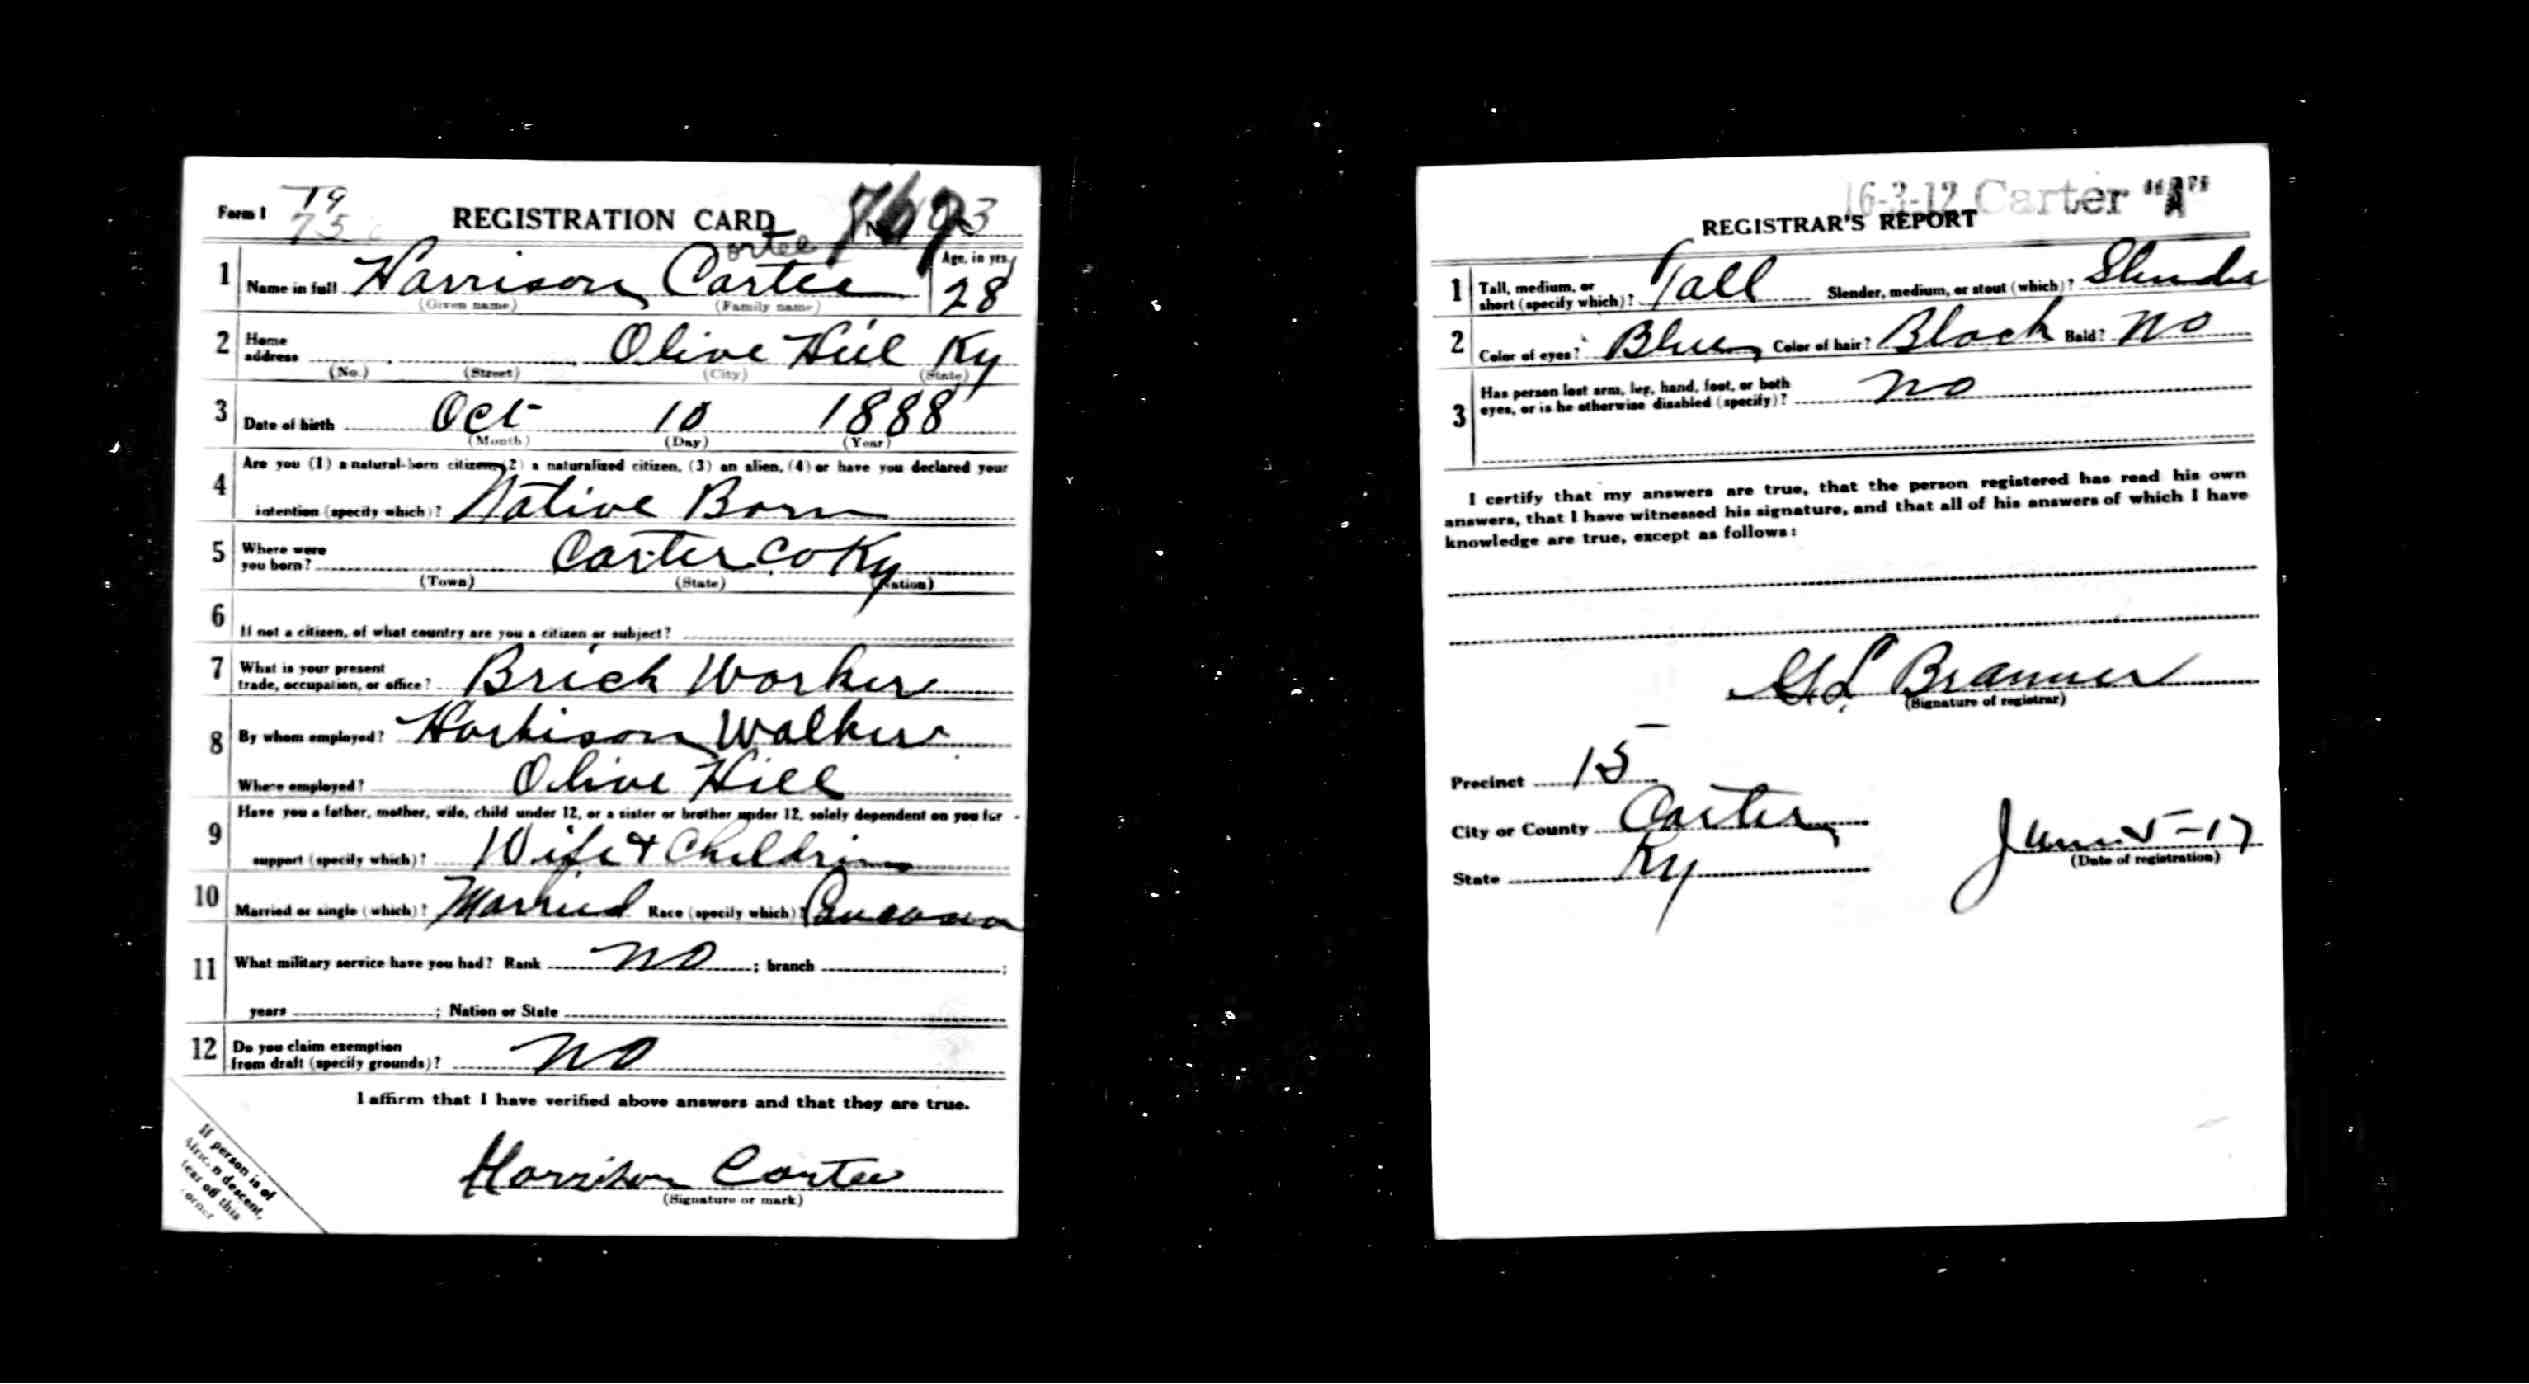 Form 1 19
75
REGISTRATION CARD No. 3
ortee
1 Name in full Harrison Cartee Age, in yrs. 28
(Given name) (Family name)
2 Home address Olive Hill Ky
(No.) (Street) (City) (State)
3 Date of birth Oct 10 1888
(Month) (Day) (Year)
4 Are you (1) a natural-born citizen, (2) a naturalized citizen, (3) an alien, (4) or have you declared your
intention (specify which)? Native Born
5 Where were you born? Carter Co Ky
(Town) (State) (Nation)
6 If not a citizen, of what country are you a citizen or subject?
7 What is your present trade, occupation, or office? Brick Worker
8 By whom employed? Harbison Walker
Where employed? Olive Hill
9 Have you a father, mother, wife, child under 12, or a sister or brother under 12, solely dependent on you for
support (specify which)? Wife & Children
10 Married or single (which)? Married Race (specify which)? Caucasian
11 What military service have you had? Rank no ; branch ;
years ; Nation or State
12 Do you claim exemption from draft (specify grounds)? no
I affirm that I have verified above answers and that they are true.
Harrison Cartee
(Signature or mark)
If person is of
African descent,
tear off this
corner
16-3-12 Carter "A"
REGISTRAR'S REPORT
1 Tall, medium, or short (specify which)? Tall Slender, medium, or stout (which)? Slender
2 Color of eyes? Blue Color of hair? Black Bald? no
3 Has person lost arm, leg, hand, foot, or both eyes, or is he otherwise disabled (specify)? no
I certify that my answers are true, that the person registered has read his own
answers, that I have witnessed his signature, and that all of his answers of which I have
knowledge are true, except as follows:
G L Brammer
(Signature of registrar)
Precinct 15
City or County Carter
State Ky
June 5-17
(Date of registration)